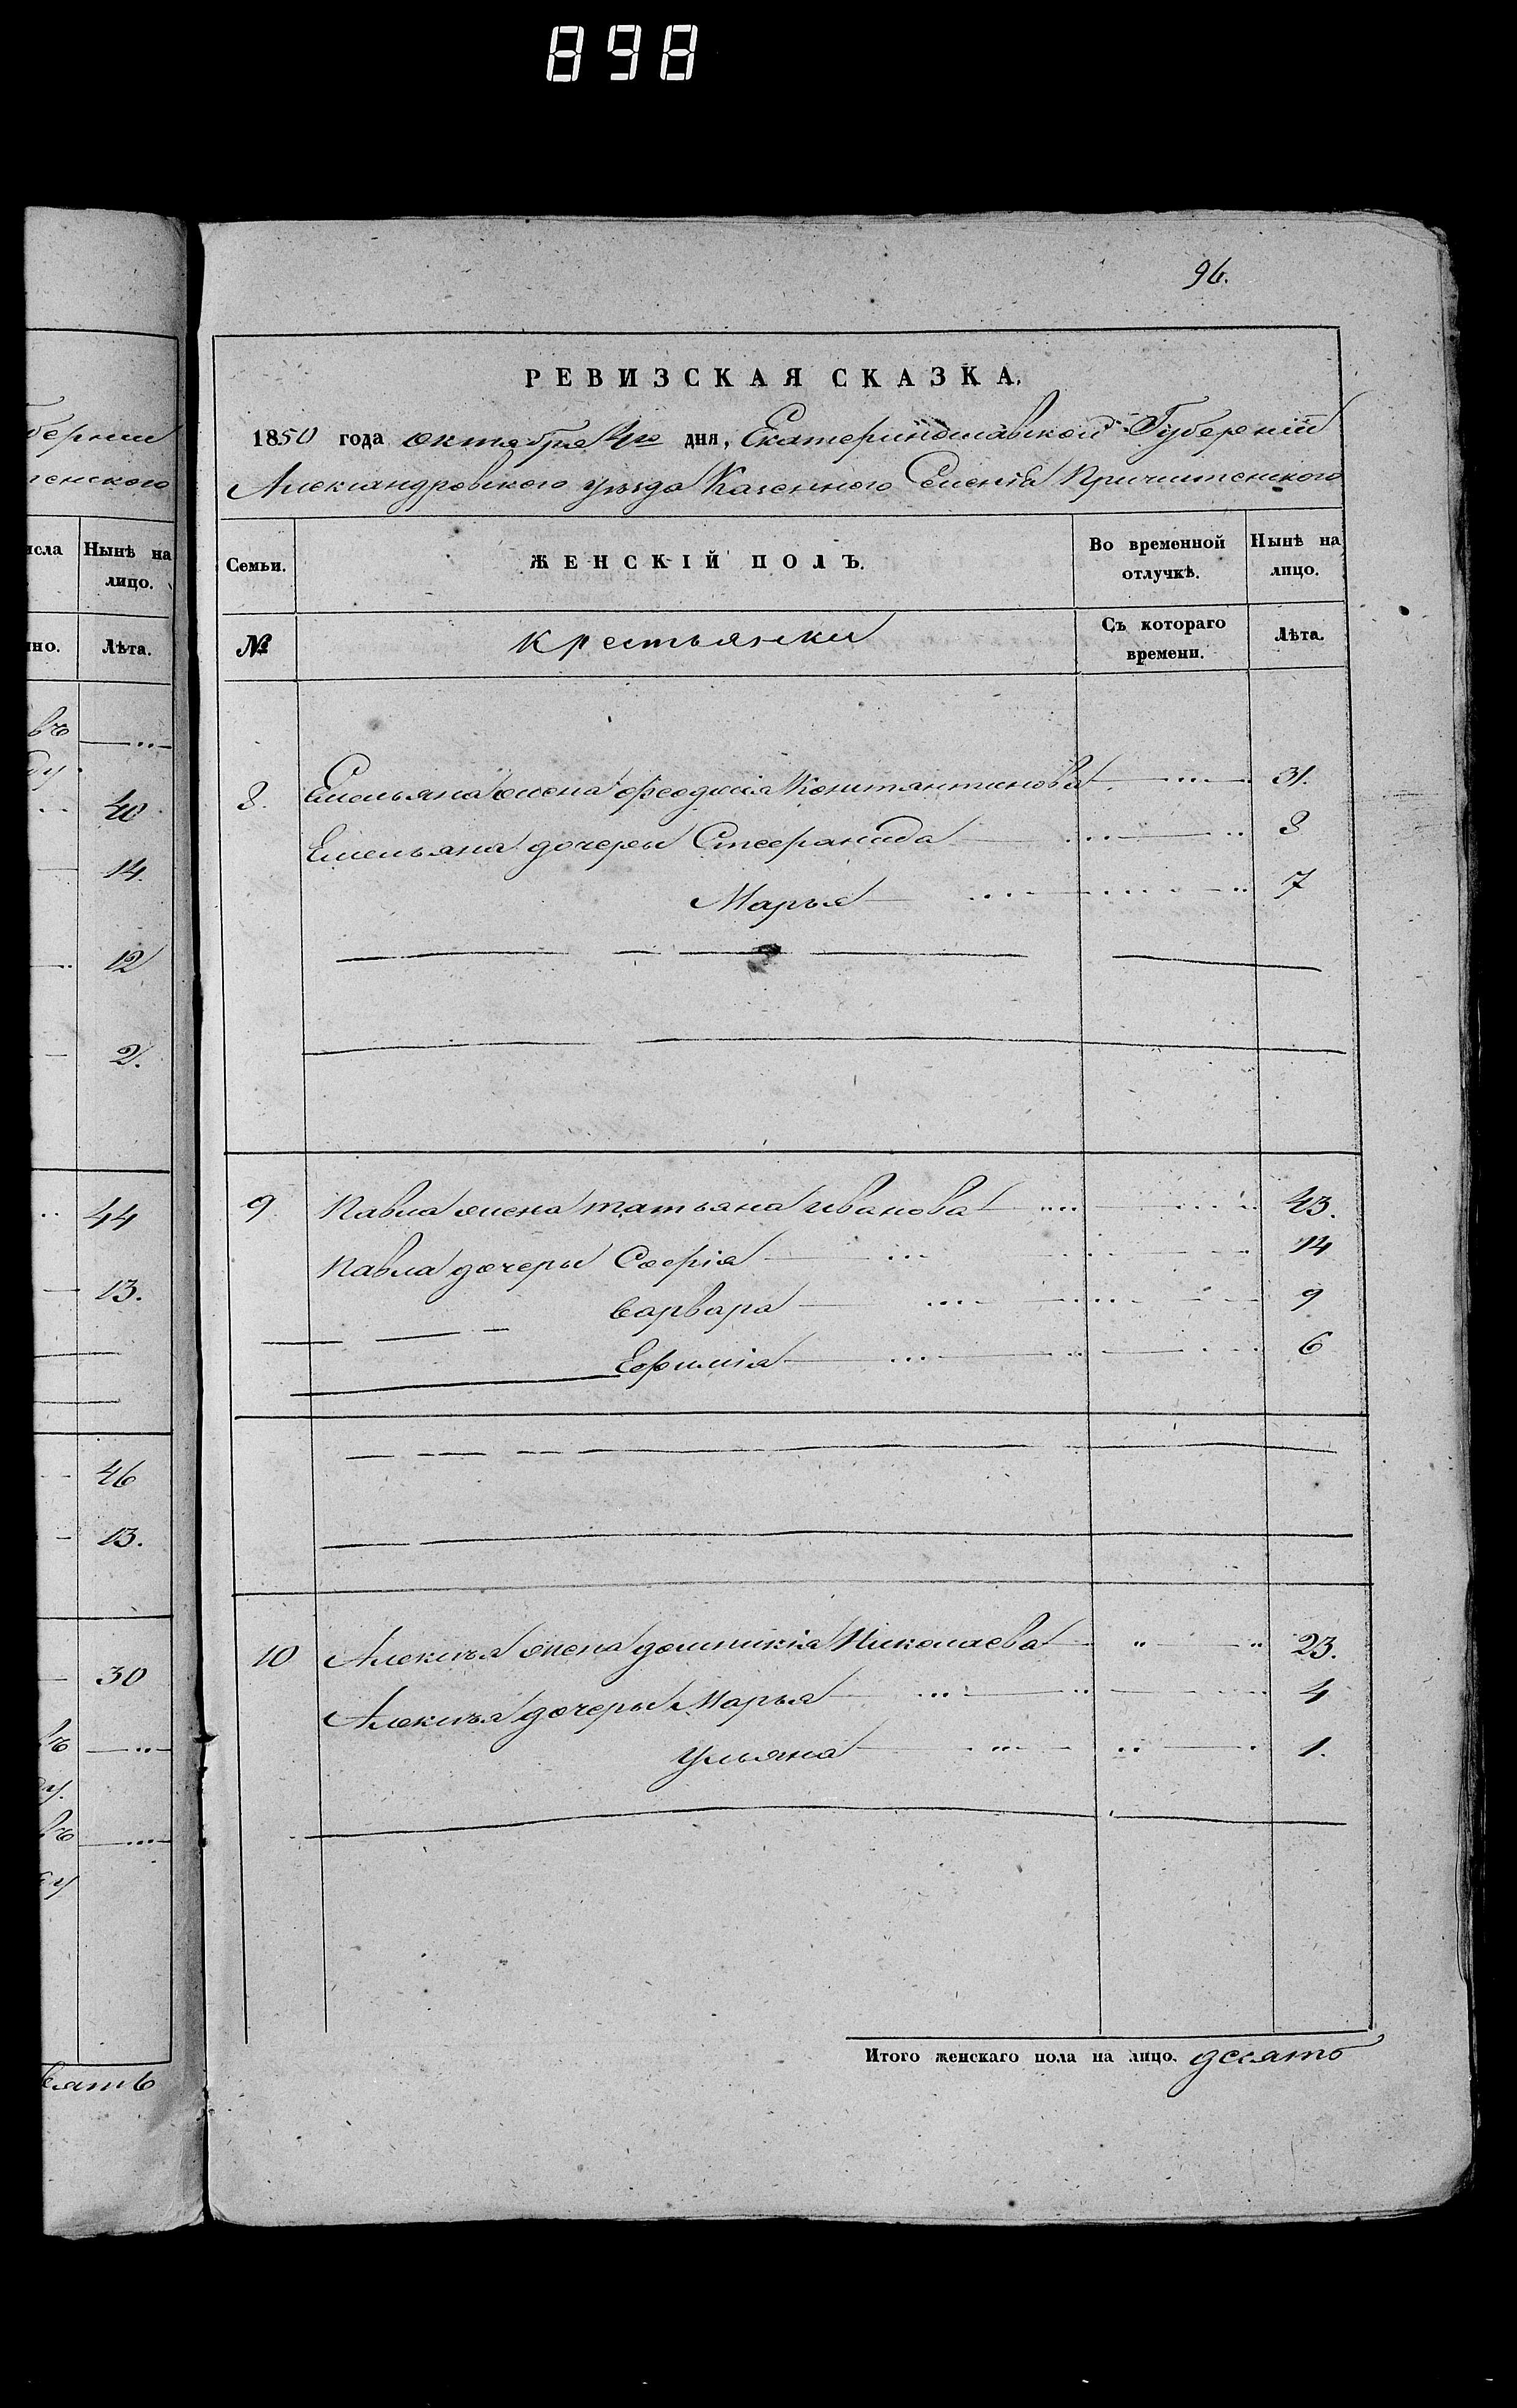 898
96.
РЕВИЗСКАЯ СКАЗКА.
1850 года октября 4го дня, Екатеринославской Губерніи
Александровского уѣзда Казенного Селенія Причистенского
Семьи. ЖЕНСКІЙ ПОЛЪ. Во временной отлучкѣ. Нынѣ на лицо.
№ Крестьянки Съ котораго времени. Лѣта.
8. Емельяна жена Феодосія Константинова 31.
Емельяна дочери Стефанида 8
Марья 7
9 Павла жена татьяна иванова 43.
Павла дочери Софія 14
варвара 9
Ефимія 6
10 Алексѣя жена домникія Николаева 23.
Алексѣя дочери Марья 4
Ульяна 1.
Итого женскаго пола на лицо. десять
берніи
тенского
исла Нынѣ на лицо.
но. Лѣта.
въ
ду
40
14.
12
2.
44
13.
46
13.
30
въ
ду.
въ
ду
вять